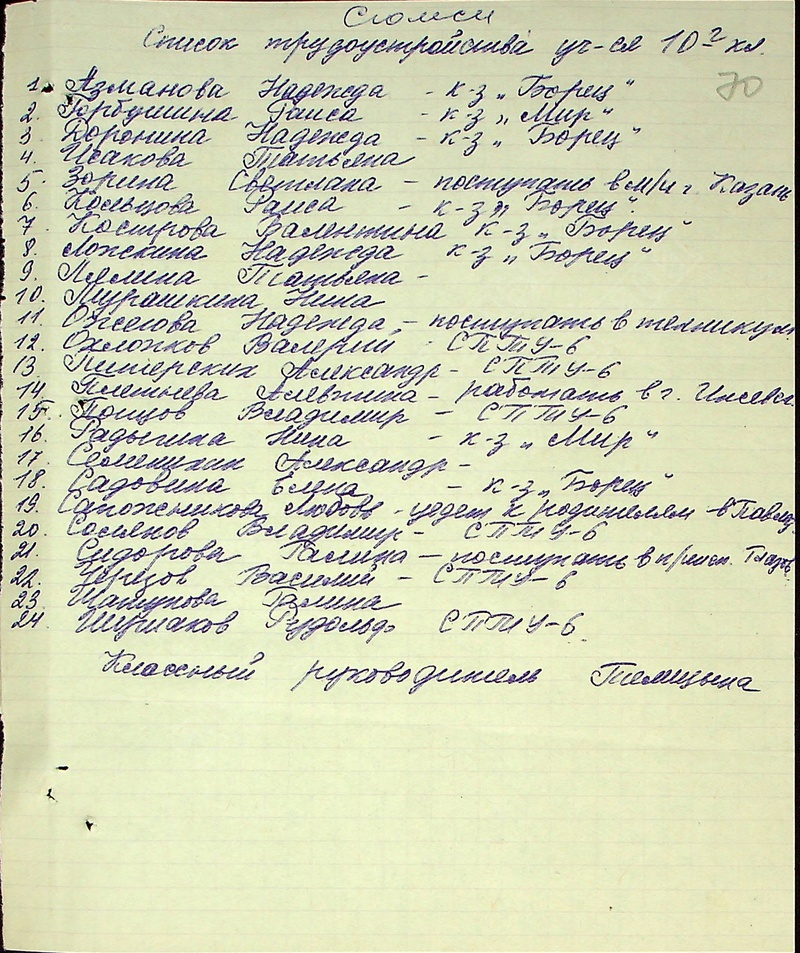 Сюмси
Список трудоустройства уч-ся 10 г кл.
70
1. Азманова Надежда - к-з „Борец"
2. Горбушина Раиса - к-з „Мир"
3 Доронина Надежда - к-з „Борец"
4. Исакова Татьяна
5. Зорина Светлана - поступать в м/уч г. Казань
6. Кольцова Раиса - к-з „Борец".
7. Кострова Валентина к-з „Борец"
8. Ложкина Надежда к-з „Борец"
9. Лялина Татьяна -
10. Мурашкина Нина
11. Ожегова Надежда, - поступать в техникум
12. Охлопков Валерий - СПТУ-6
13. Питерских Александр - СПТУ-6
14. Плетнева Алевтина - работать в г. Ижевск
15. Попцов Владимир - СПТУ-6
16. Радыгина Нина - к-з „Мир"
17. Семенихин Александр -
18. Садовина Елена - к-з „Борец"
19. Сапожникова Любовь - уедет к родителям - в
20. Владимир - СПТУ-6
21. Сидорова Галина - поступать в Глазов
22. Черезов Василий - СПТУ-6
23. Галина
24. Шушаков Рудольф СПТУ-6
Классный руководитель Телицына